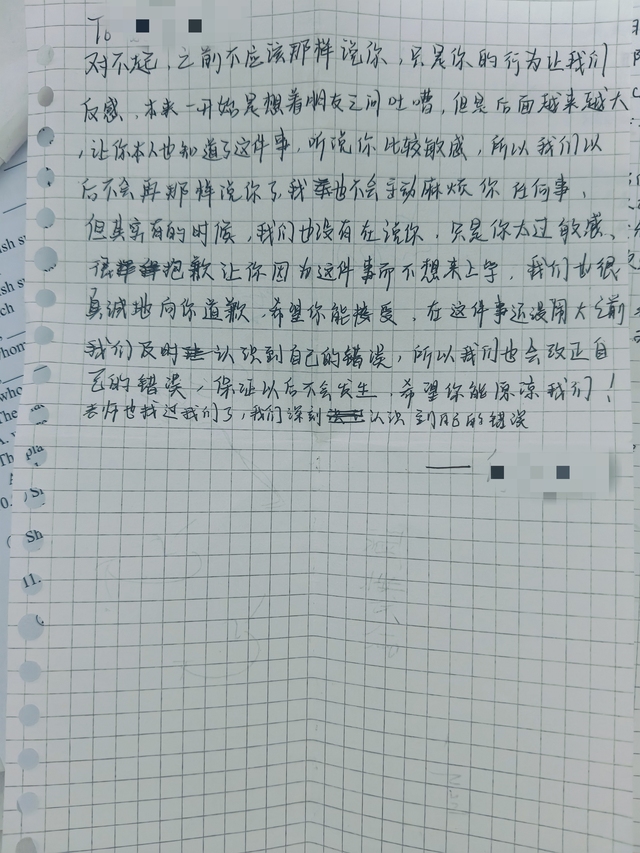 To
对不起，之前不应该那样说你，只是你的行为让我们
反感，本来一开始是想着朋友之间吐嘈，但是后面越来越大
，让你本人也知道了这件事，听说你比较敏感，所以我们以
后不会再那样说你了，我也不会手动麻烦你任何事、
但其实有的时候，我们也没有在说你，只是你太过敏感、
很抱歉让你因为这件事而不想来上学，我们也很
真诚地向你道歉，希望你能接受，在这件事还没闹大之前
我们及时认识到自己的错误，所以我们也会改正自
己的错误，保证以后不会发生，希望你能原谅我们！
老师也找过我们了，我们深刻认识到自己的错误
——
ish s
ish s
ch
Whom
who
The
Th
pla
0.
Si
Sh
11.